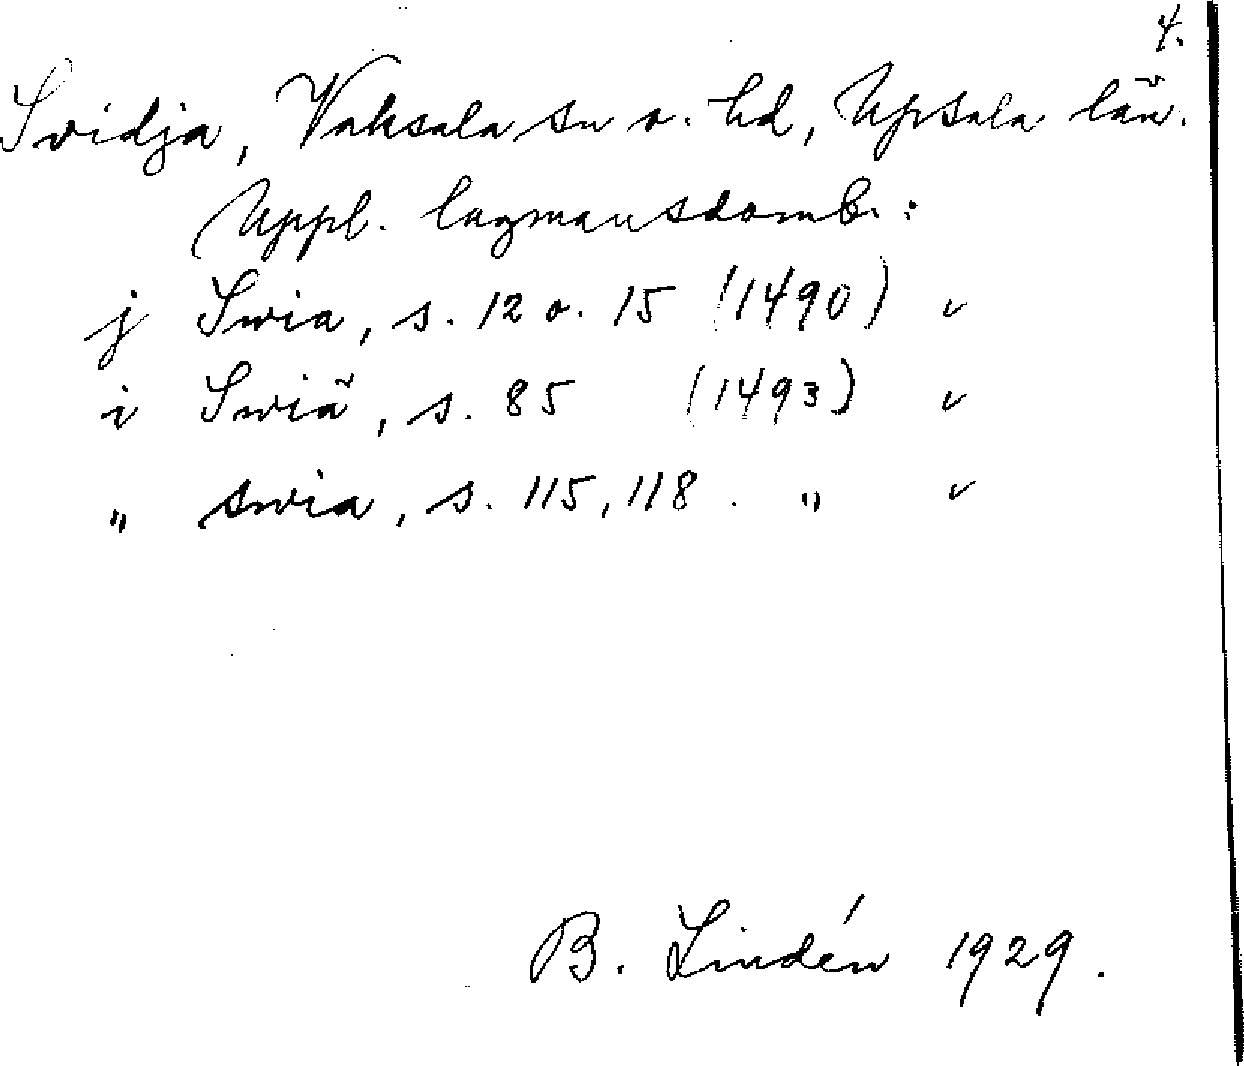 4.
Svidja, Vaksala sn o. hd, Upsala län.
Uppl. lagmansdomb.:
j Swia, s. 12 o. 15 (1490) ✓
i Swiä, s. 85 (1493) ✓
" swia, s. 115, 118. " ✓
B. Lindén 1929.